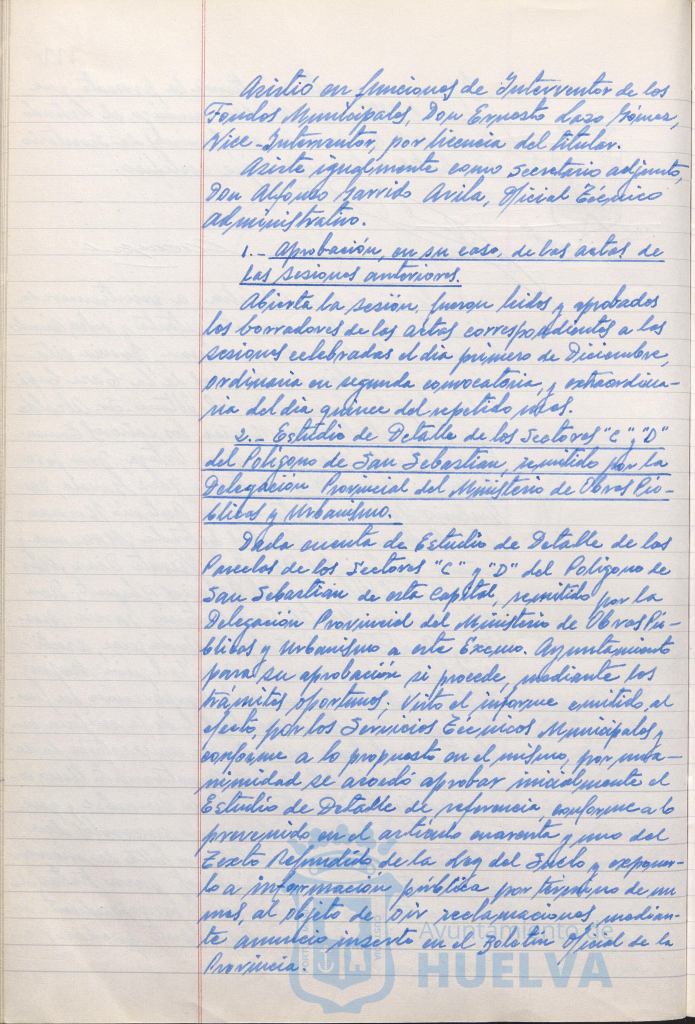 Asistió en funciones de Interventor de los
Fondos Municipales, Don Ernesto Lazo Gómez,
Vice-Interventor, por licencia del titular.
Asiste igualmente como Secretario adjunto,
Don Alfonso Garrido Avila, Oficial Técnico
Administrativo.
1.- Aprobación, en su caso, de las actas de
las sesiones anteriores.
Abierta la sesión, fueron leidos y aprobados
los borradores de las actas correspondientes a las
sesiones celebradas el dia primero de Diciembre,
ordinaria en segunda convocatoria, y extraordina-
ria del dia quince del repetido mes.
2.- Estudio de Detalle de los Sectores "C" y "D"
del Poligono de San Sebastian, remitido por la
Delegación Provincial del Ministerio de Obras Pú-
blicas y Urbanismo.
Dada cuenta de Estudio de Detalle de las
Parcelas de los Sectores "C" y "D" del Poligono de
San Sebastian de esta Capital, remitido por la
Delegación Provincial del Ministerio de Obras Pú-
blicas y Urbanismo a este Excmo. Ayuntamiento
para su aprobación si procede, mediante los
trámites oportunos; Visto el informe emitido, al
efecto, por los Servicios Técnicos Municipales y
conforme a lo propuesto en el mismo, por una-
nimidad se acordó aprobar inicialmente el
Estudio de Detalle de referencia, conforme a lo
prevenido en el articulo cuarenta y uno del
Texto Refundido de la Ley del Suelo y exponer-
lo a información pública por término de un
mes, al objeto de oir reclamaciones, median-
te anuncio inserto en el Boletin Oficial de la
Provincia.
Ayuntamiento de
HUELVA